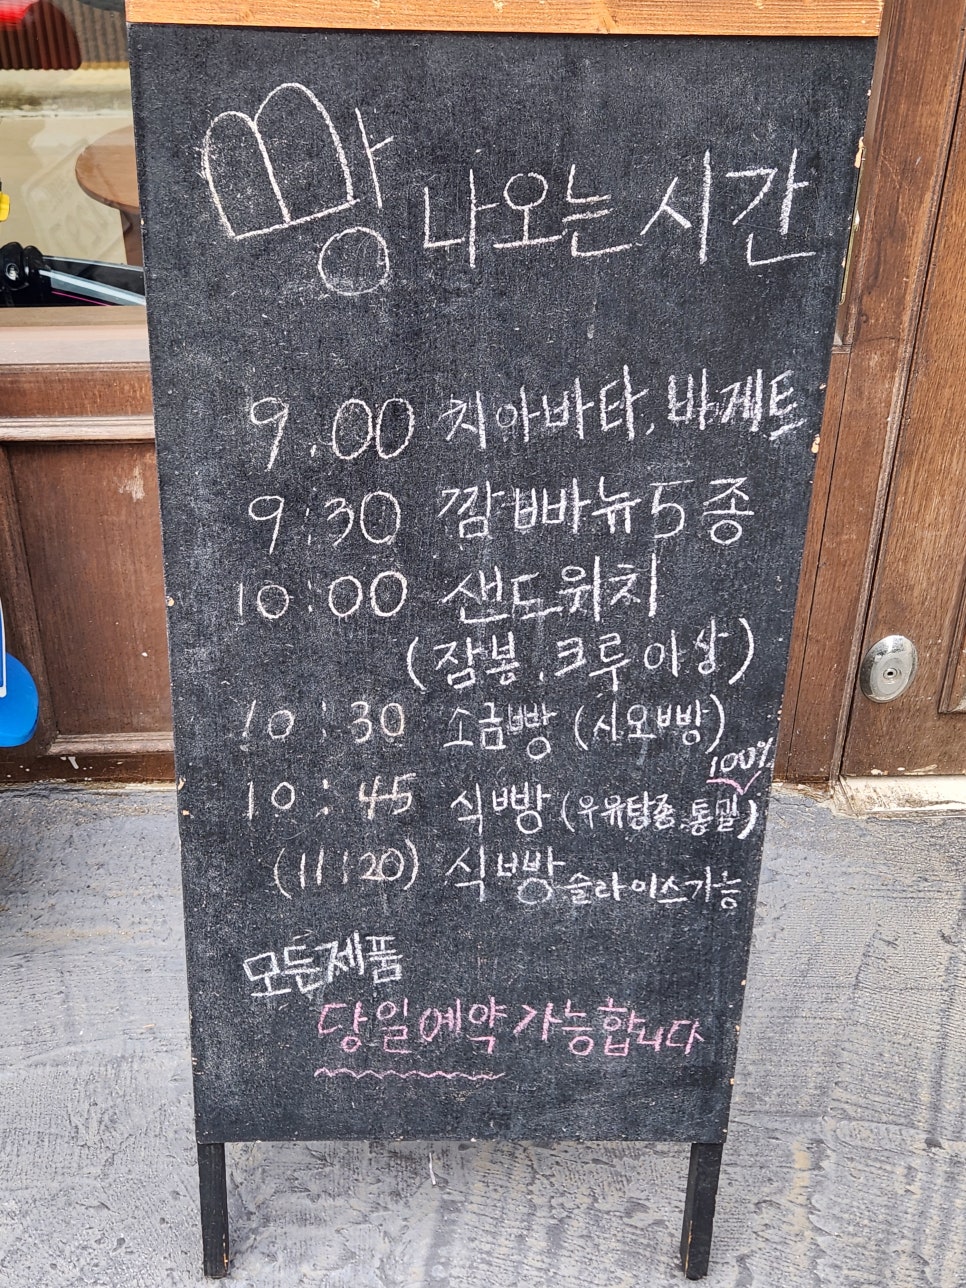 빵 나오는 시간
9.00 치아바타, 바게트
9:30 깜빠뉴 5종
10:00 샌드위치
(잠봉, 크루아상)
10:30 소금빵 (시오빵)
100%
10:45 식빵 (우유탕종, 통밀)
(11:20) 식빵 슬라이스가능
모든제품
당일예약 가능합니다